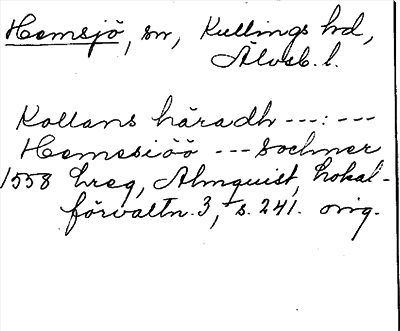 Hemsjö, sn, Kullings hd,
Älvsb. l.
Kollans häradh ---:---
Hemesiöö --- sochner
1558 hreg, Almquist, Lokal-
förvaltn. 3, s. 241. orig.